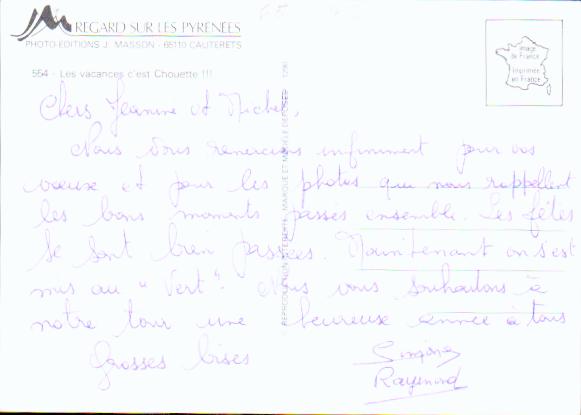 REGARD SUR LES PYRÉNÉES
PHOTO-EDITIONS J. MASSON - 65110 CAUTERETS
554 - Les vacances c'est Chouette !!!
Image de France
Imprimée en France
REPRODUCTION INTERDITE. MARQUE ET MODÈLE DÉPOSÉS
Chers Jeanine et Michel,
Nous vous remercions infiniment pour vos
voeux et pour les photos qui nous rappellent
les bons moments passés ensemble. Les fêtes
se sont bien passées. Maintenant on s'est
mis au "Vert". Nous vous souhaitons à
notre tour une heureuse année à tous
Grosses bises
Raymond